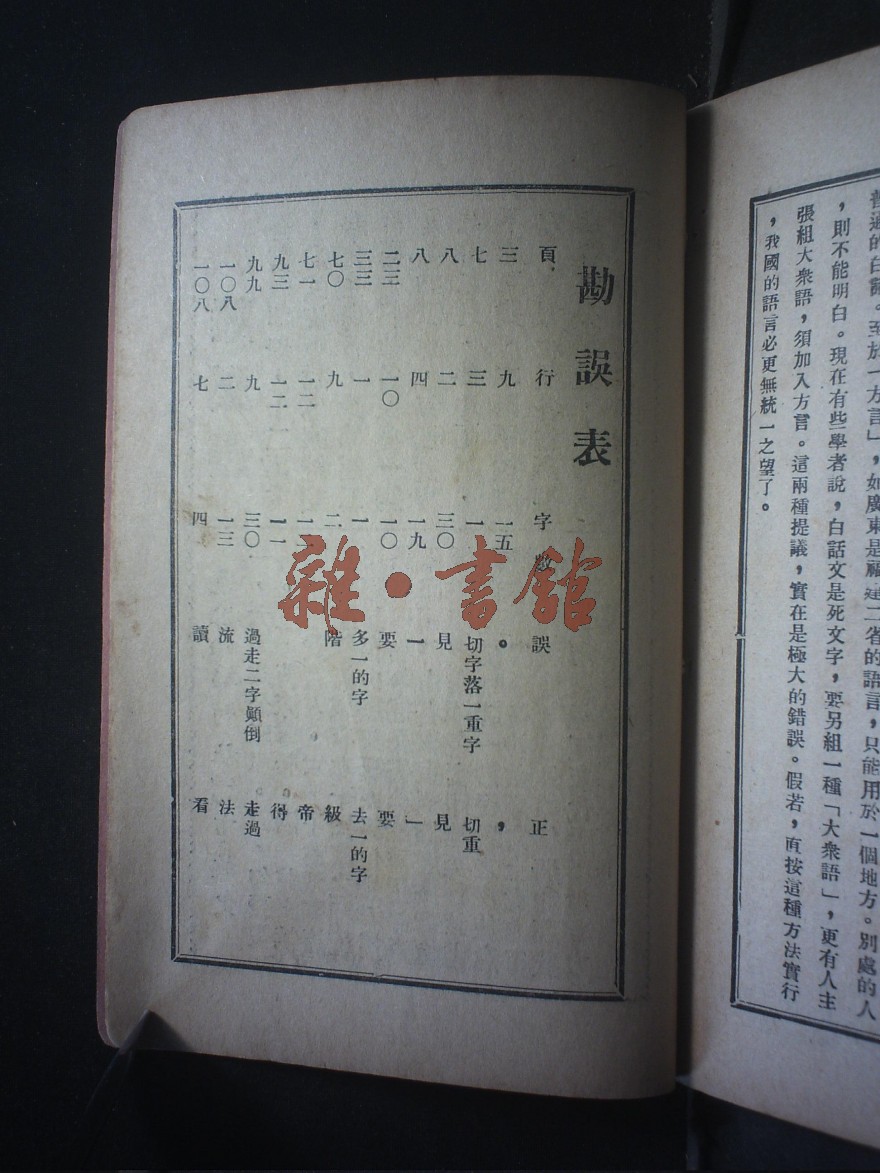 普通的白話。至於一方言」，如廣東是福建二省的語言，只能用於一個地方。別處的人
，則不能明白。現在有些學者說，白話文是死文字，要另組一種「大衆語」，更有人主
張組大衆語，須加入方言。這兩種提議，實在是極大的錯誤。假若，直按這種方法實行
，我國的語言必更無統一之望了。
勘誤表
頁 行 字數 誤 正
三 九 一五 。 ，
七 三 一 切字落一重字 切重
八 二 三〇 見 見
八 四 一九 一 」
二三 一〇 一〇 要 要
三三 一 一 多一的字 去一的字
七〇 九 二 階 級
七一 一二 一二 帝
九三 一二 一一 得
九九 九 三〇 過走二字顚倒 走過
一〇八 二 一三 流 法
一〇八 七 四 讀 看
雜·書館